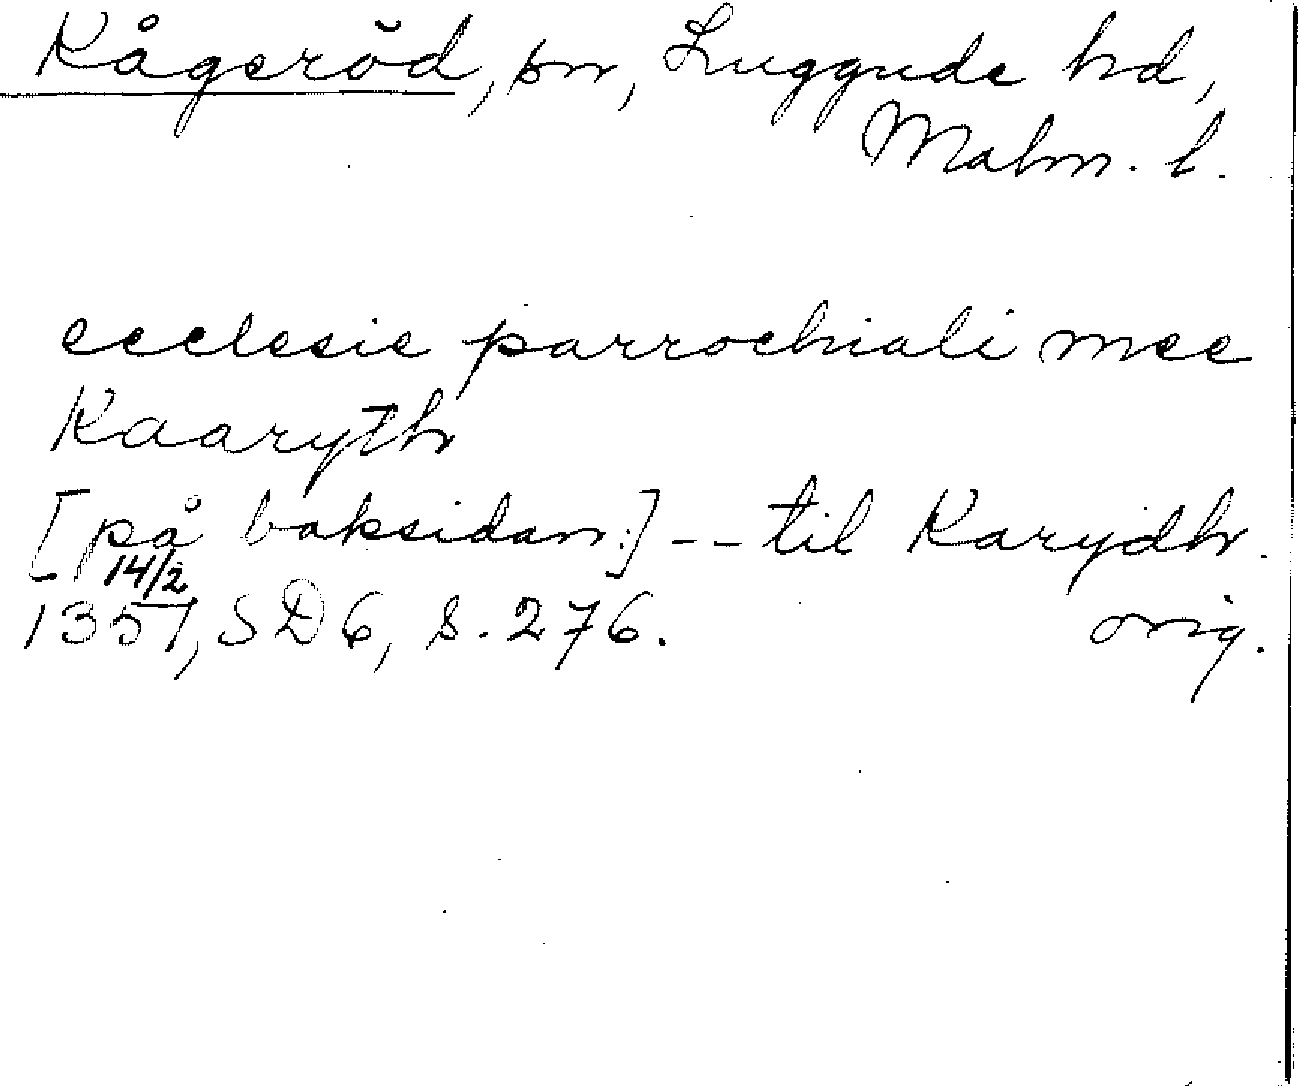 Kågeröd, sn, Luggude hd,
Malm. l.
ecclesie parrochiali mee
Kaaryth
[på baksidan:] -- til Karydh.
14/2
1357, SD 6, s. 276. orig.